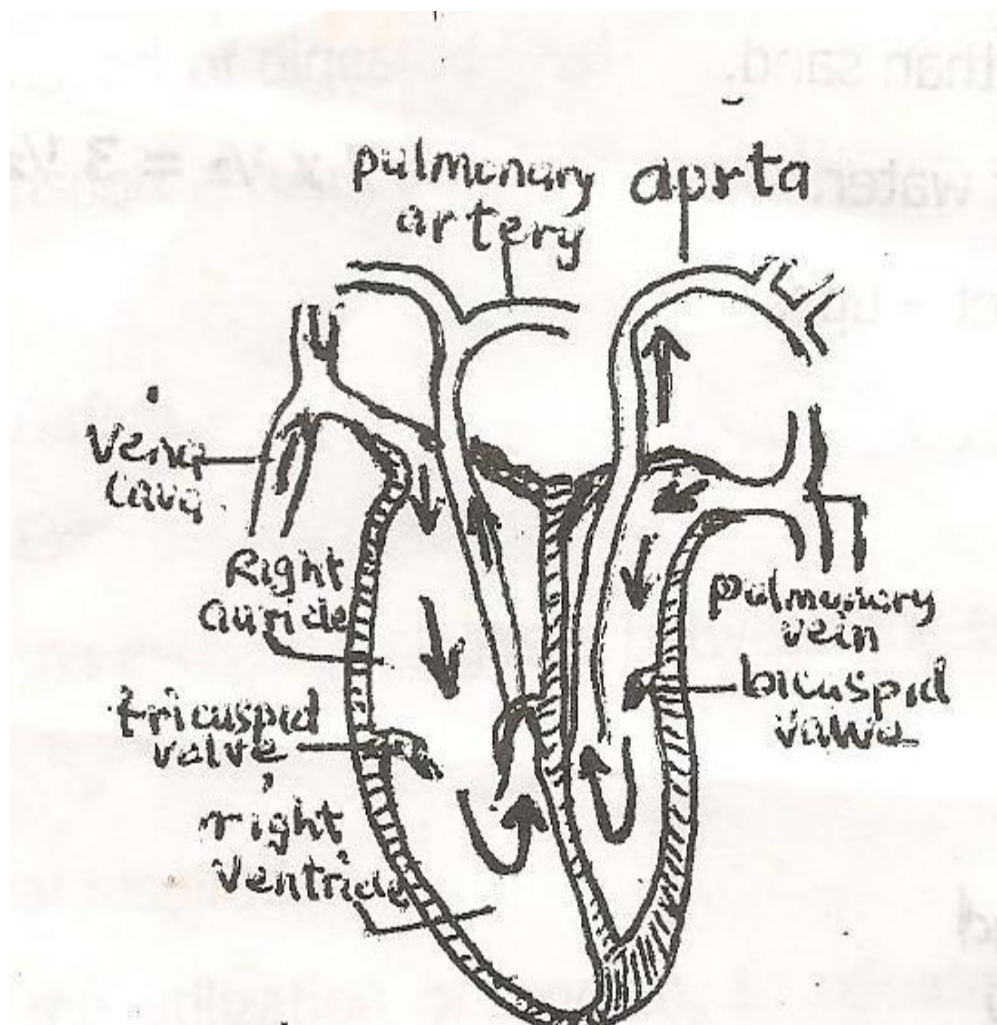 than sand.
water
x ½ = 3 ½
pulmonary
artery
aprta
Vena
cava
Right
auricle
tricuspid
valve
right
ventricle
pulmonary
vein
bicuspid
vawe